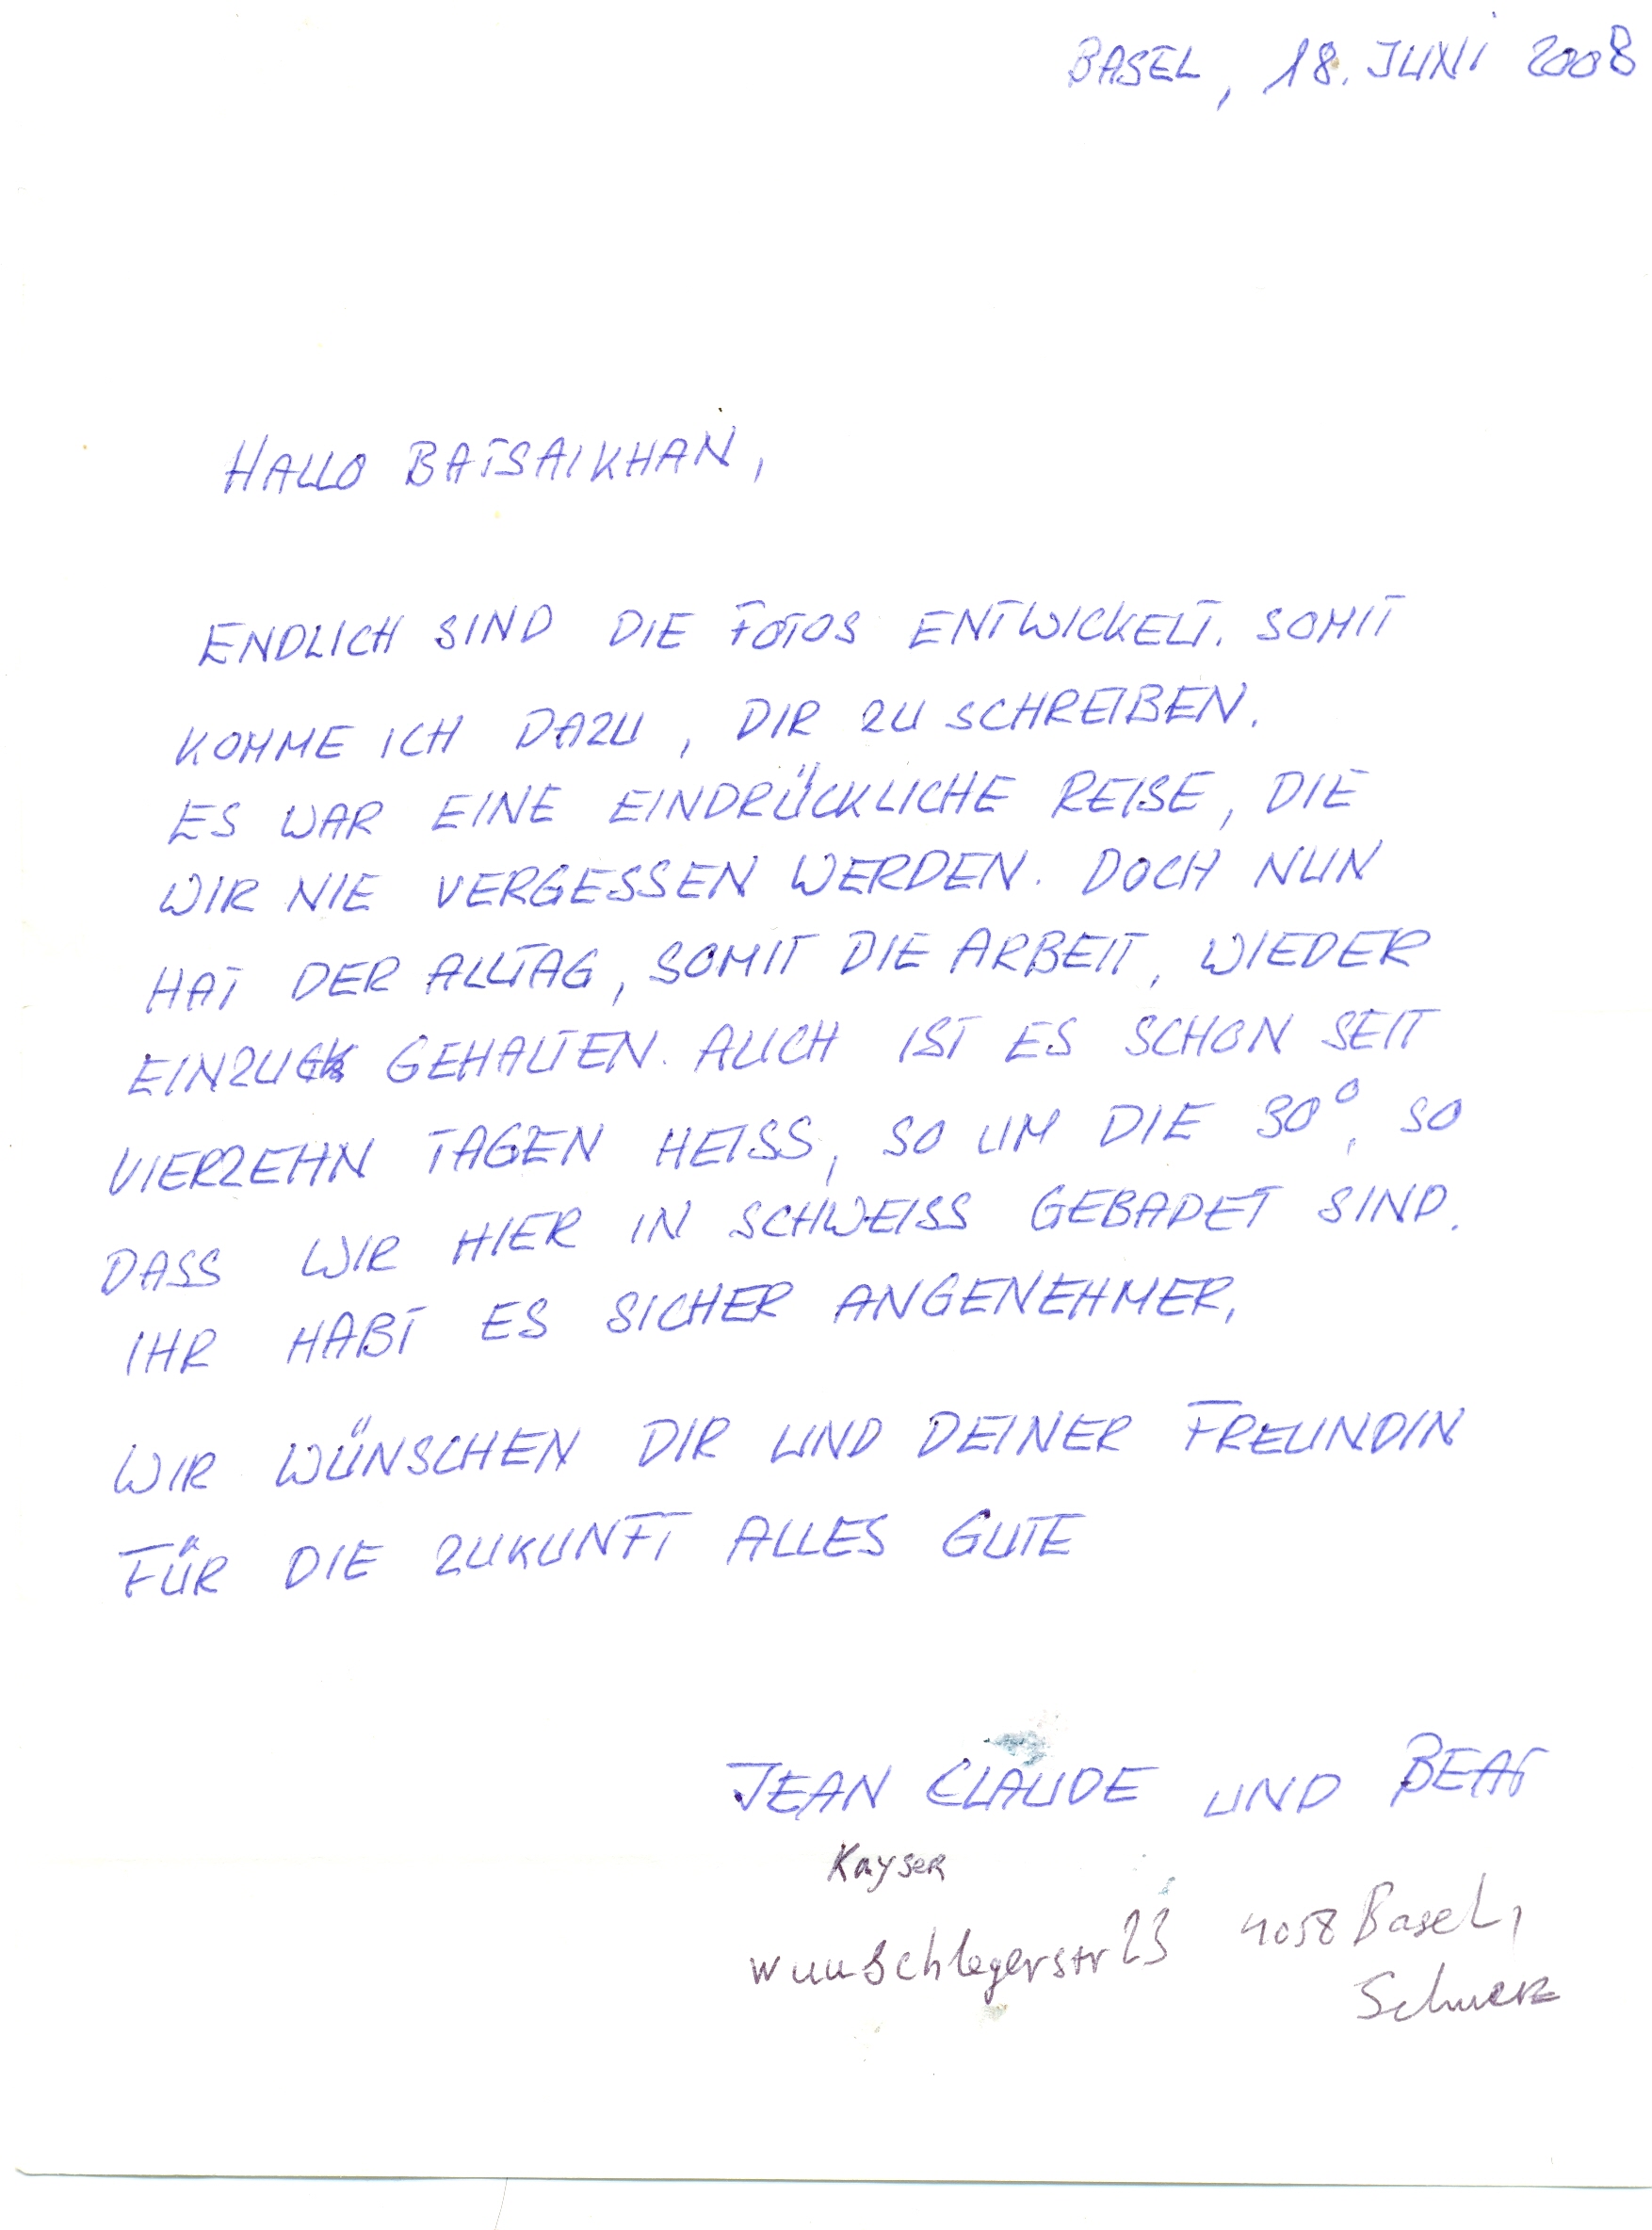 BASEL, 18. JUNI 2008
HALLO BATSAIKHAN,
ENDLICH SIND DIE FOTOS ENTWICKELT. SOMIT
KOMME ICH DAZU, DIR ZU SCHREIBEN.
ES WAR EINE EINDRÜCKLICHE REISE, DIE
WIR NIE VERGESSEN WERDEN. DOCH NUN
HAT DER ALLTAG, SOMIT DIE ARBEIT, WIEDER
EINZUG GEHALTEN. AUCH IST ES SCHON SEIT
VIERZEHN TAGEN HEISS, SO UM DIE 30°, SO
DASS WIR HIER IN SCHWEISS GEBADET SIND.
IHR HABT ES SICHER ANGENEHMER,
WIR WÜNSCHEN DIR UND DEINER FREUNDIN
FÜR DIE ZUKUNFT ALLES GUTE
JEAN CLAUDE UND BEAT
Kayser
23 4058 Basel,